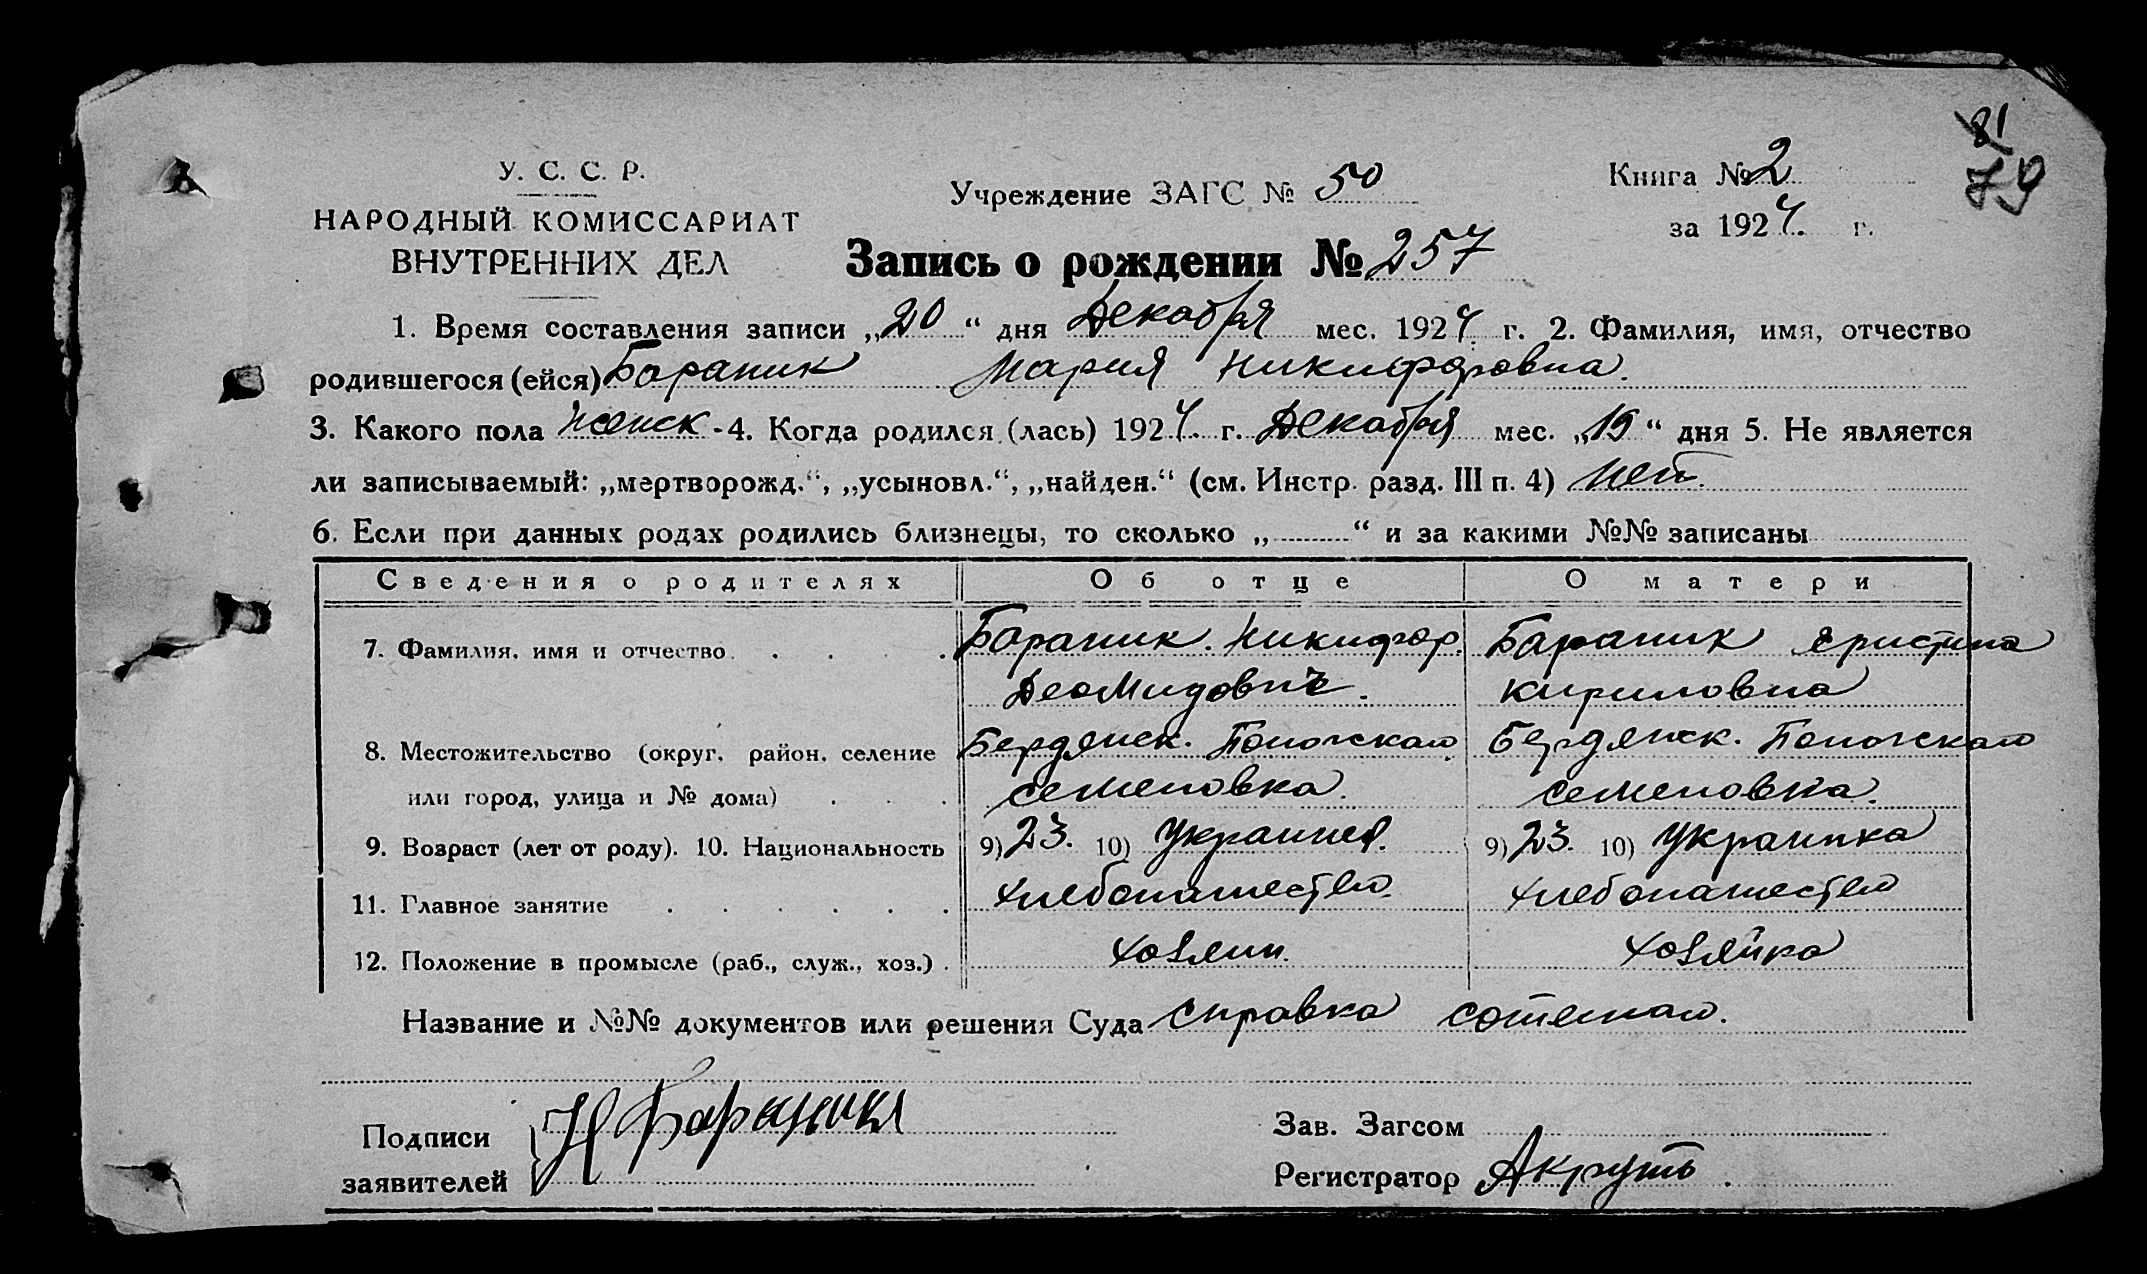 81
79
У. С. С. Р.
НАРОДНЫЙ КОМИССАРИАТ
ВНУТРЕННИХ ДЕЛ
Учреждение ЗАГС № 50
Книга № 2
за 1924 г.
Запись о рождении № 257
1. Время составления записи „20“ дня Декабря мес. 1924 г. 2. Фамилия, имя, отчество
родившегося (ейся) Бараник Мария Никифоровна.
3. Какого пола женск - 4. Когда родился (лась) 1924 г. Декабря мес. „19“ дня 5. Не является
ли записываемый: „мертворожд.“, „усыновл.“, „найден.“ (см. Инстр. разд. III п. 4) Нет.
6. Если при данных родах родились близнецы, то сколько „ “ и за какими №№ записаны
Сведения о родителях Об отце О матери
7. Фамилия, имя и отчество Бараник Никифор Бараник Христина
Деомидович. Кириловна
8. Местожительство (округ, район, селение Бердянск. Бердянск.
или город, улица и № дома) Семеновка. Семеновка.
9. Возраст (лет от роду). 10. Национальность 9) 23. 10) Украинец. 9) 23. 10) Украинка
11. Главное занятие Хлебопашество Хлебопашество
12. Положение в промысле (раб., служ., хоз.) Хозяин. Хозяйка
Название и №№ документов или решения Суда Справка
Подписи
заявителей Н Бараник
Зав. Загсом
Регистратор